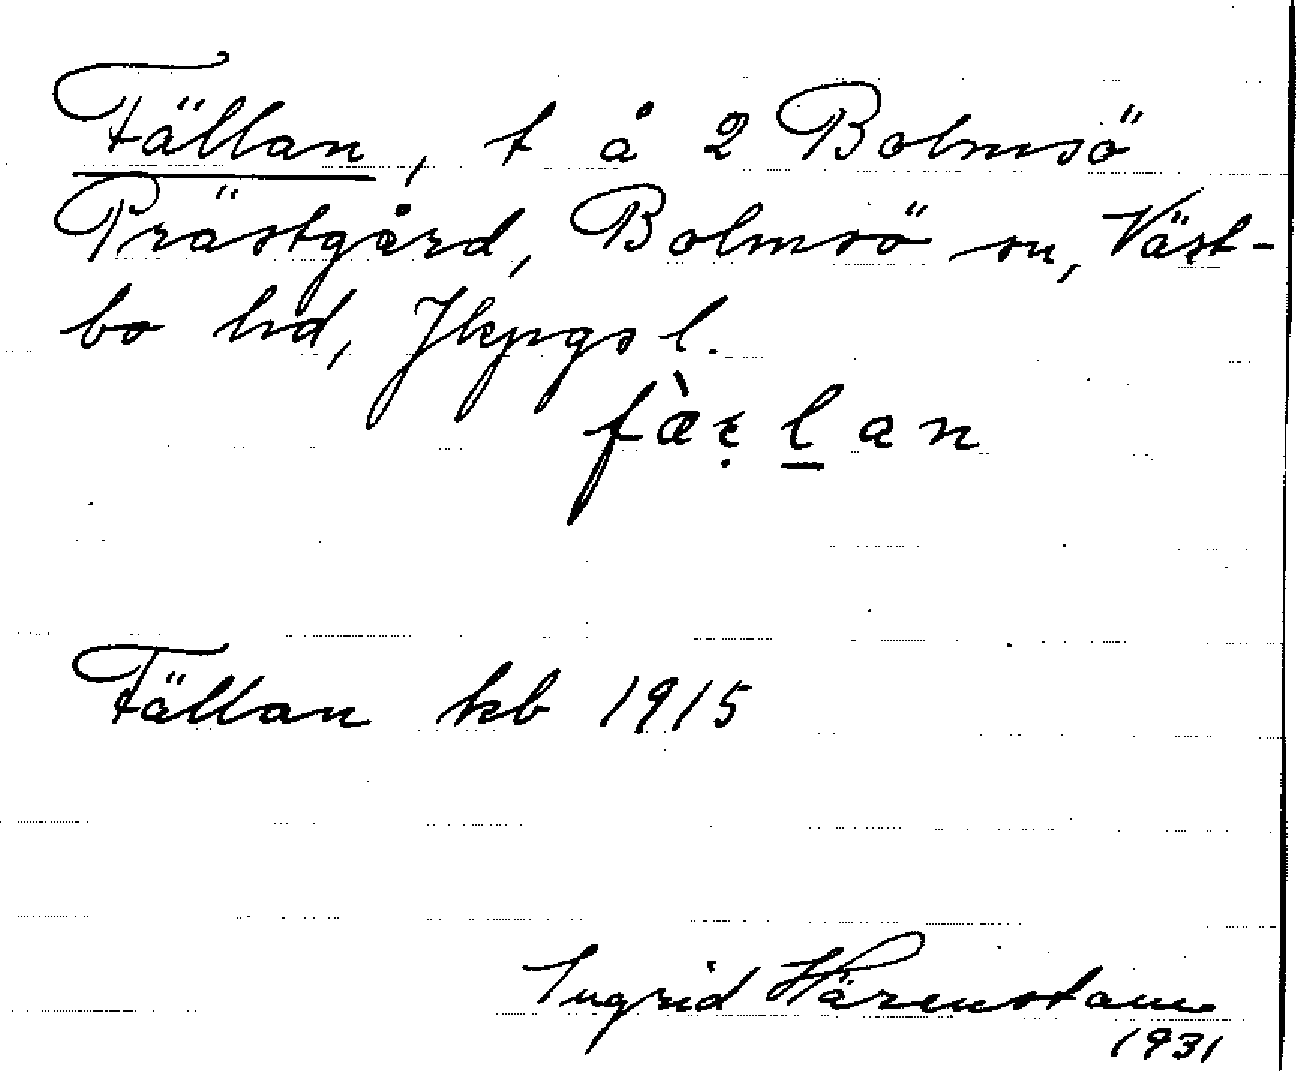 Fällan, t å 2 Bolmsö
Prästgård, Bolmsö sn, Väst-
bo hd, Jkpgs l.
fàẹḻan
Fällan kb 1915
Ingrid Härenstam
1931